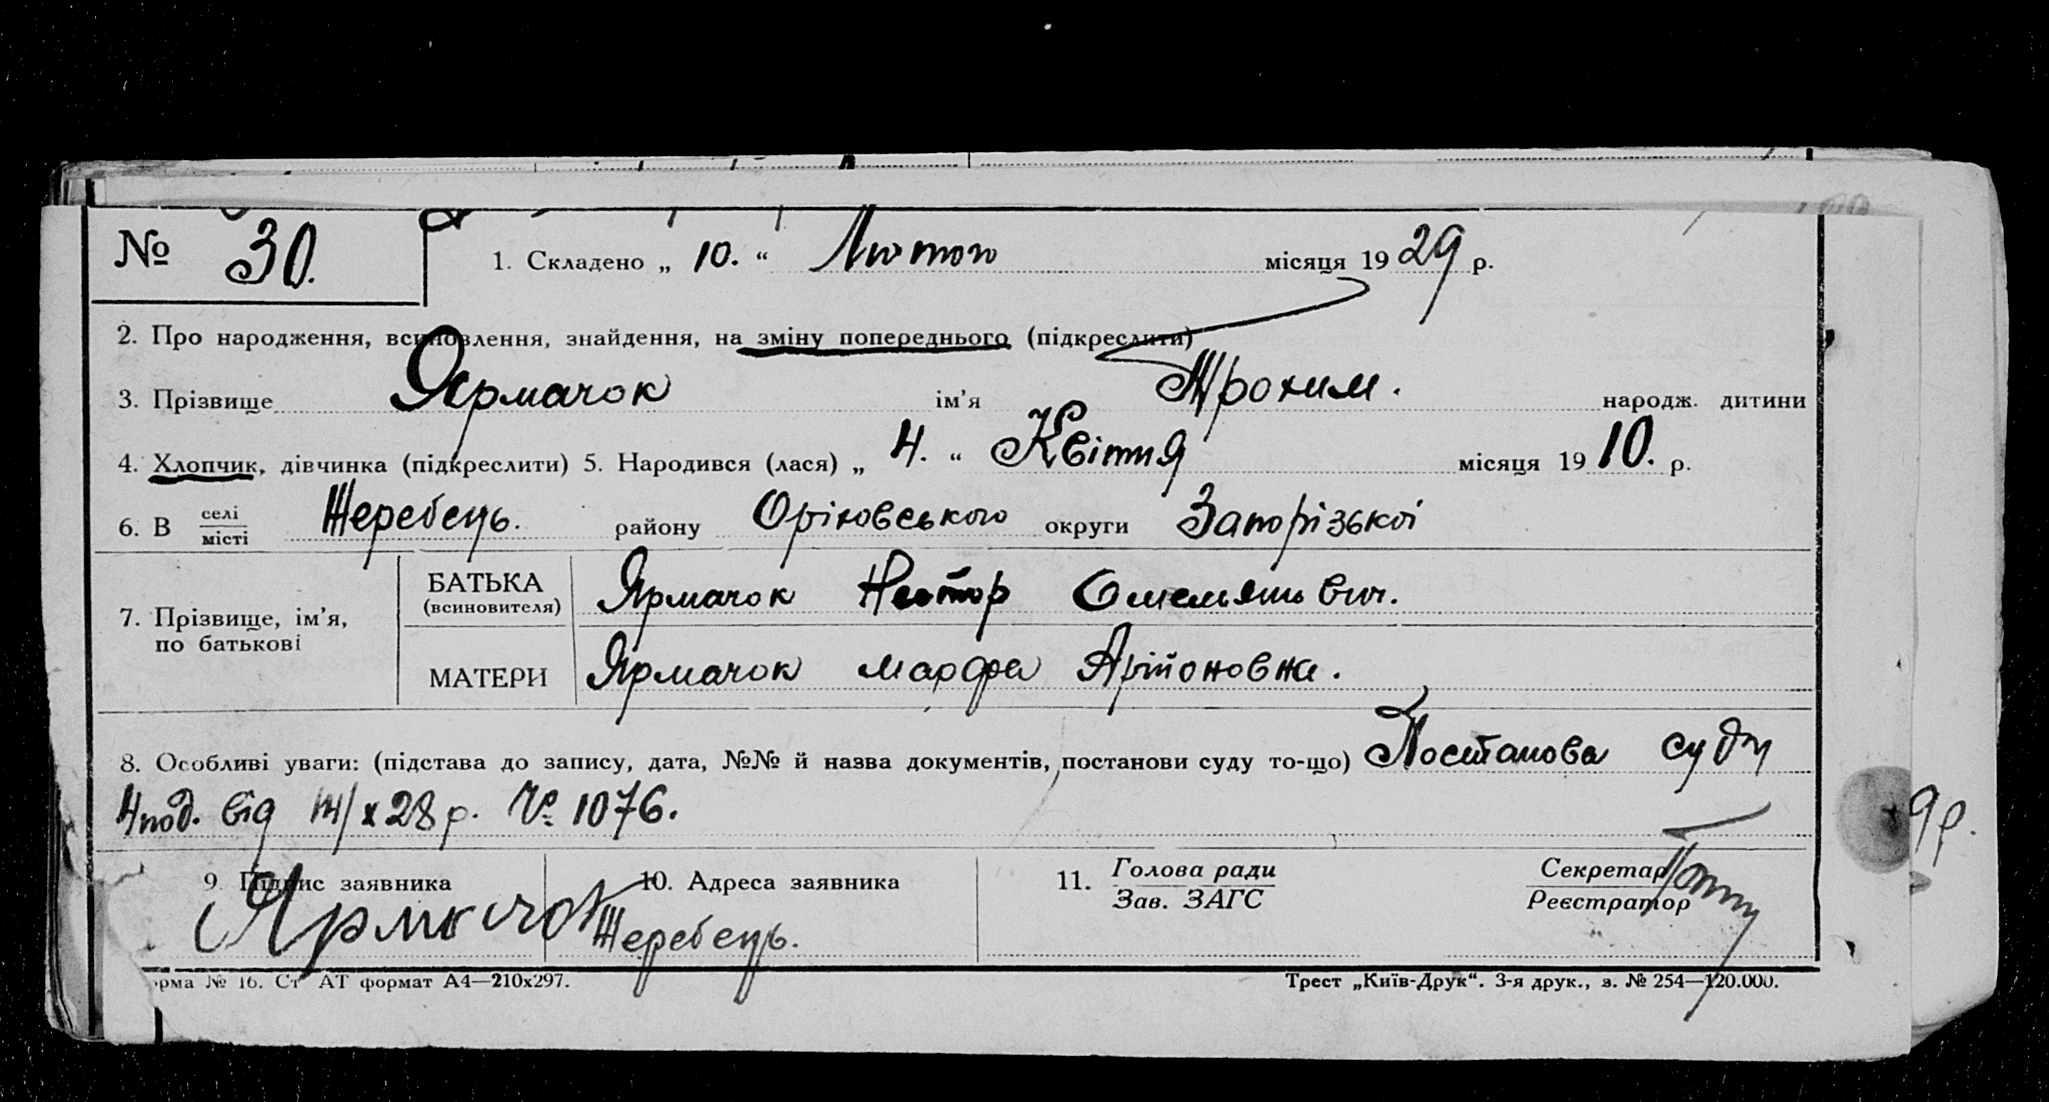 № 30. 1. Складено „ 10. “ Лютого місяця 1929 р.
2. Про народження, всиновлення, знайдення, на зміну попереднього (підкреслити)
3. Прізвище Ярмачок ім’я Трохим. народж. дитини
4. Хлопчик, дівчинка (підкреслити) 5. Народився (лася) „ 4. “ Квітня місяця 1910. р.
6. В селі місті Жеребець. району Оріховського округи Запорізької
7. Прізвище, ім’я, по батькові
БАТЬКА (всиновителя) Ярмачок Нестор Омелянович.
МАТЕРИ Ярмачок Марфа
8. Особливі уваги: (підстава до запису, дата, №№ й назва документів, постанови суду то-що) Постанова суду
від 14/x 28 р. № 1076.
9. Підпис заявника 10. Адреса заявника 11. Голова ради Секретар
Зав. ЗАГС Реєстратор
Ярмачок Жеребець.
орма № 16. Ст АТ формат А4—210х297. Трест „Київ-Друк“. 3-я друк., з. № 254—120.000.
9р.